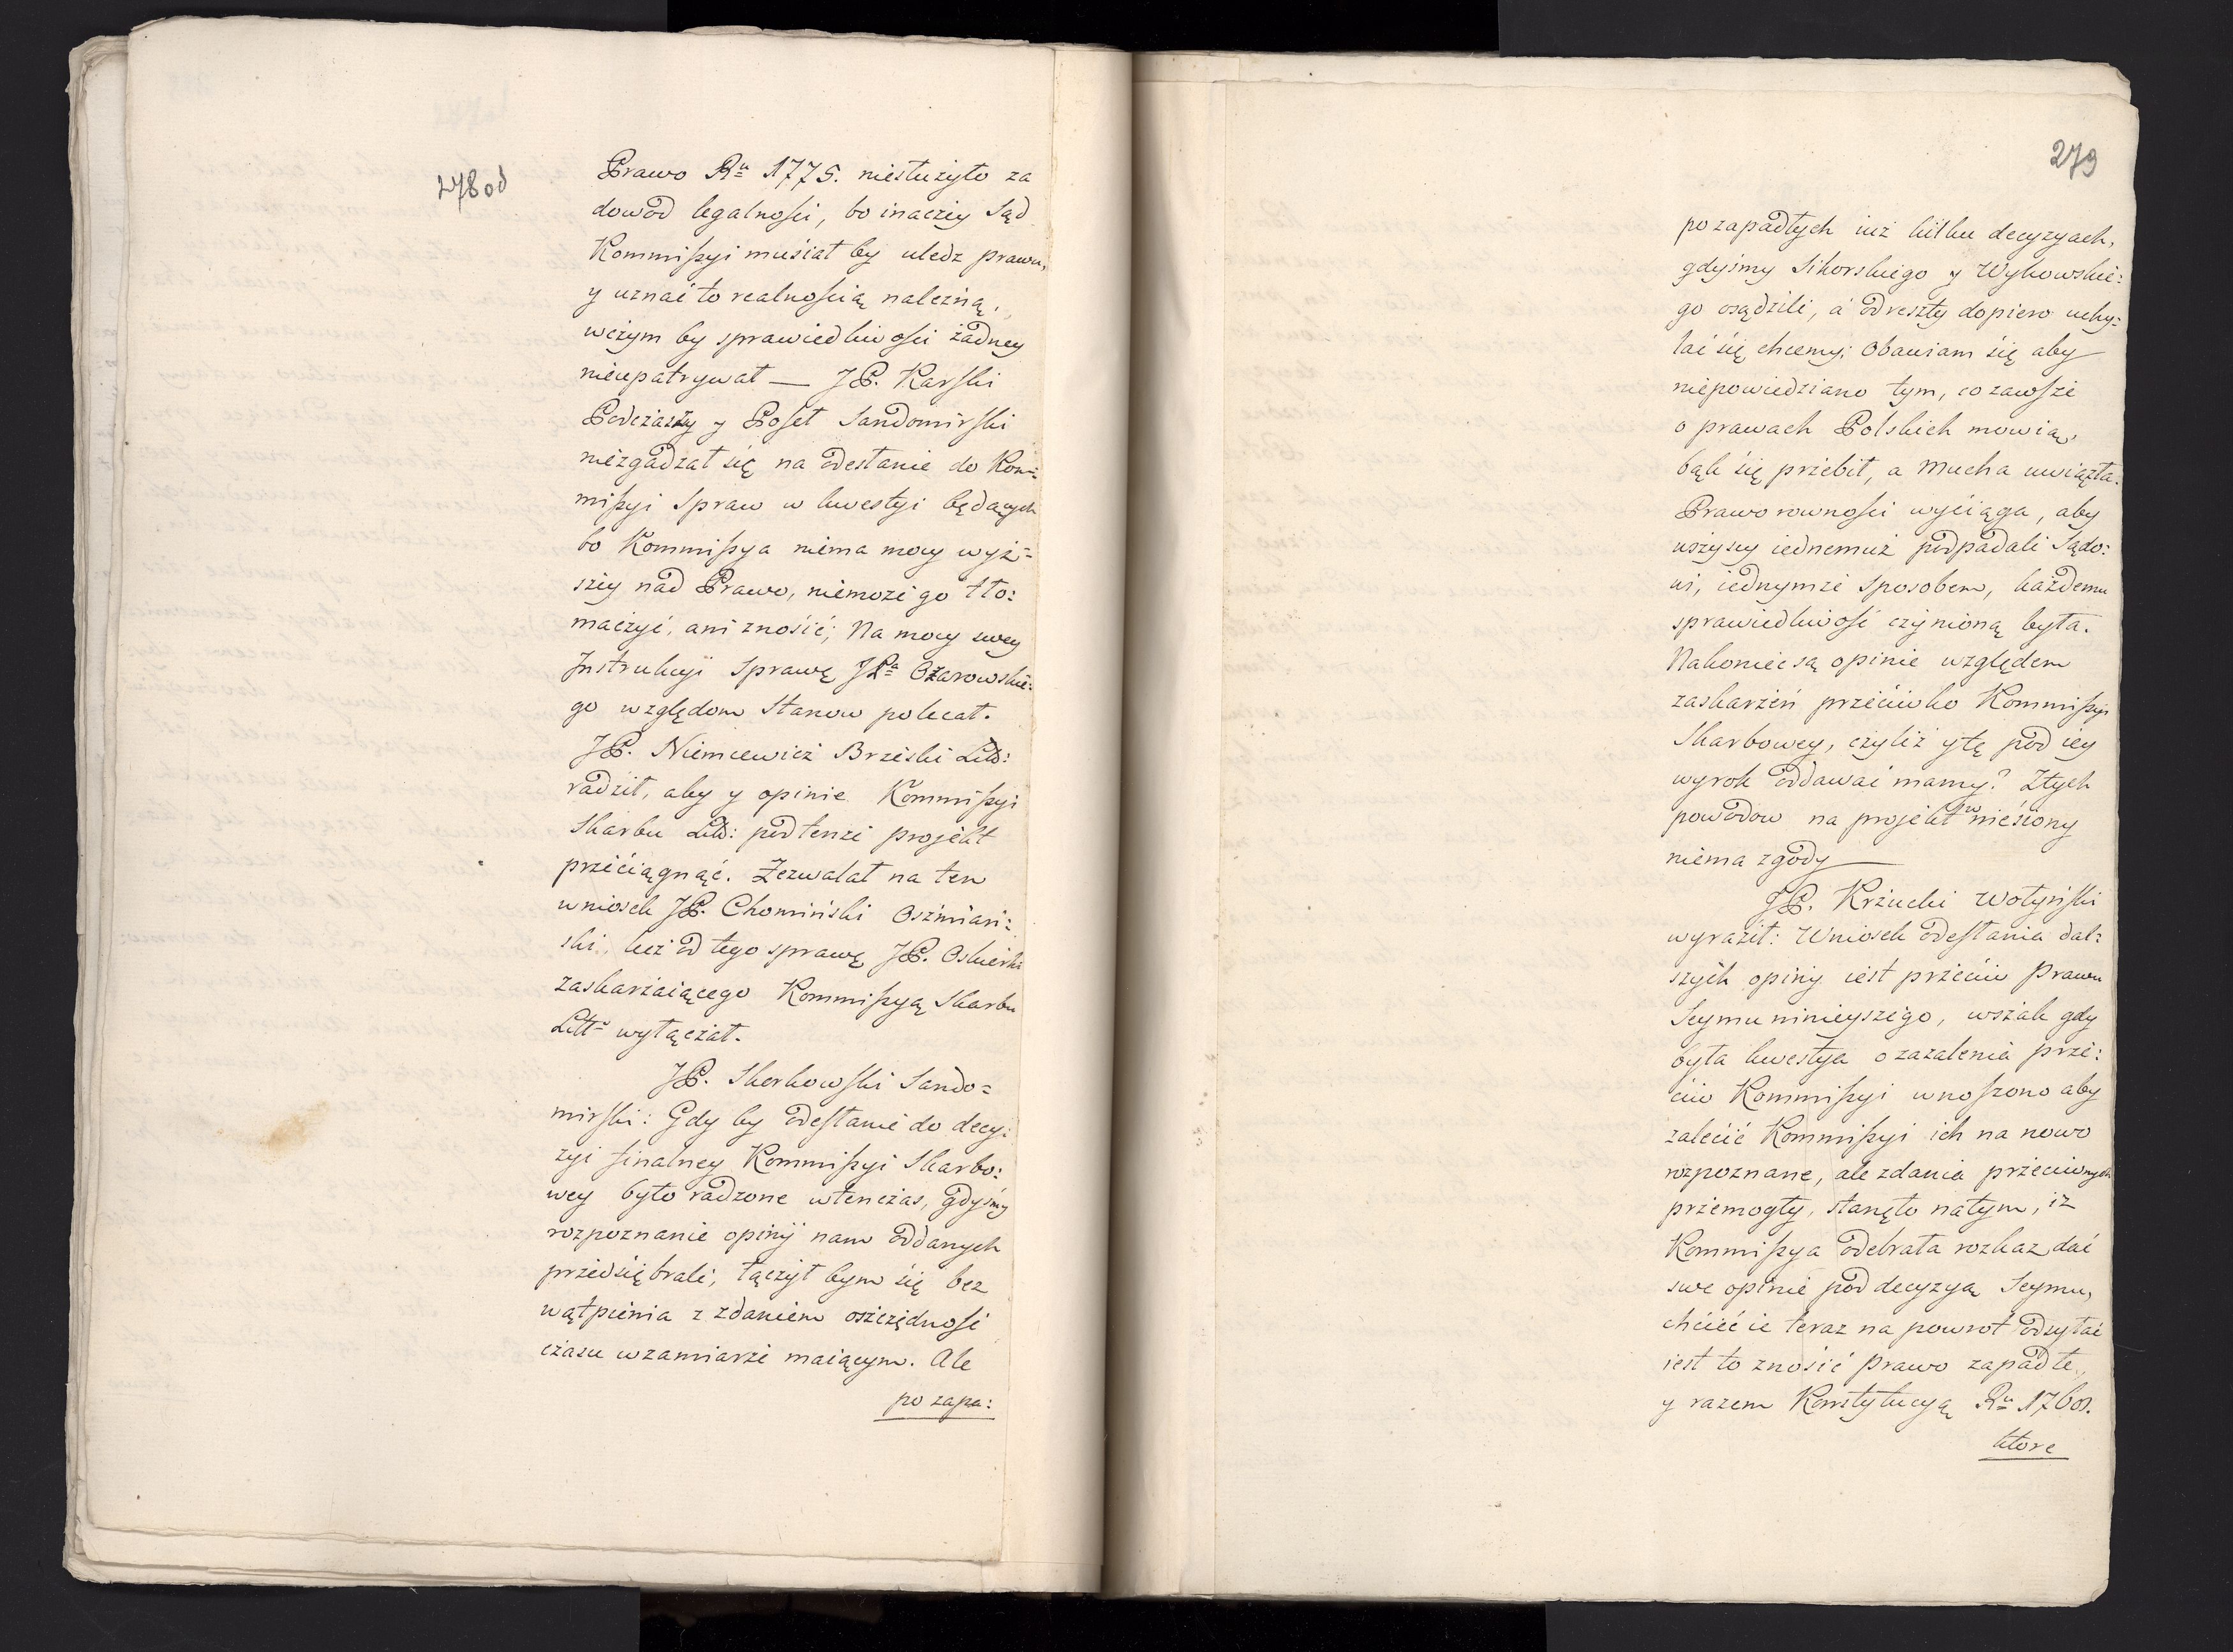 278od
Prawo Ru 1775. niesłużyło za
dowod legalności, bo inaczey Sąd
Kommissyi musiał by uledz prawu,
y uznać to realnością należną,
wczym by sprawiedliwości żadney
nieupatrywał — JP. Karski
Podczaszy y Poseł Sandomirski
niezgadzał się na odesłanie do Kom=
missyi Spraw w kwestyi będących
bo Kommissya niema mocy wyż=
szey nad Prawo, niemoże go tło:
maczyć, ani znosić; Na mocy swey
Instrukcyi Sprawę JPa Ożarowskie:
go względom Stanow polecał.
JP. Niemcewicz Brzeski Litt:
radził, aby y opinie Kommissyi
Skarbu Litt: pod tenże projekt
przeciągnąć. Zezwalał na ten
wniosek JP. Chomiński Oszmiań:
ski, lecz od tego sprawę JP. Oskierki
zaskarżaiącego Kommissyą Skarbu
Litt= wyłączał.
JP. Skorkowski Sando=
mirski: Gdy by odesłanie do decy:
zyi finalney Kommissyi Skarbo:
wey było radzone wtenczas, gdyśmy
rozpoznanie opiny nam oddanych
przedsiębrali, łączył bym się bez
wątpienia z zdaniem oszczędność
czasu wzamiarze maiącym. Ale
po zapa:
279
po zapadłych iuż kilku decyzyach,
gdyśmy Sikorskiego y Wykowskie:
go osądzili, a od reszty dopiero uchy:
lać się chcemy; Obawiam się aby
niepowiedziano tym, co zawsze
o prawach Polskich mowią,
bąk się przebił, a Mucha uwięzła.
Prawo rowności wyciąga, aby
wszyscy iednemuż podpadali Sądo:
wi, iednymże sposobem, każdemu
sprawiedliwość czynioną była.
Nakoniec są opinie względem
zaskarżeń przeciwko Kommissyi
Skarbowey, czyliż y tę pod iey
wyrok oddawać mamy? Z tych
powodow na projekt wniesiony
niema zgody —
JP. Krzucki Wołyński
wyraził: Wniosek odesłania dal:
szych opiny iest przeciw Prawu
Seymu ninieyszego, wszak gdy
była kwestya o zażalenia prze:
ciw Kommissyi wnoszono aby
zalecić Kommissyi ich na nowo
rozpoznane, ale zdania przeciwnych
przemogły, stanęło na tym, iż
Kommissya odebrała rozkaz dać
swe opinie pod decyzyą Seymu,
chcieć ie teraz na powrot odsyłać
iest to znosić Prawo zapadłe,
y razem Konstytucyą Ru 1768.
ktore